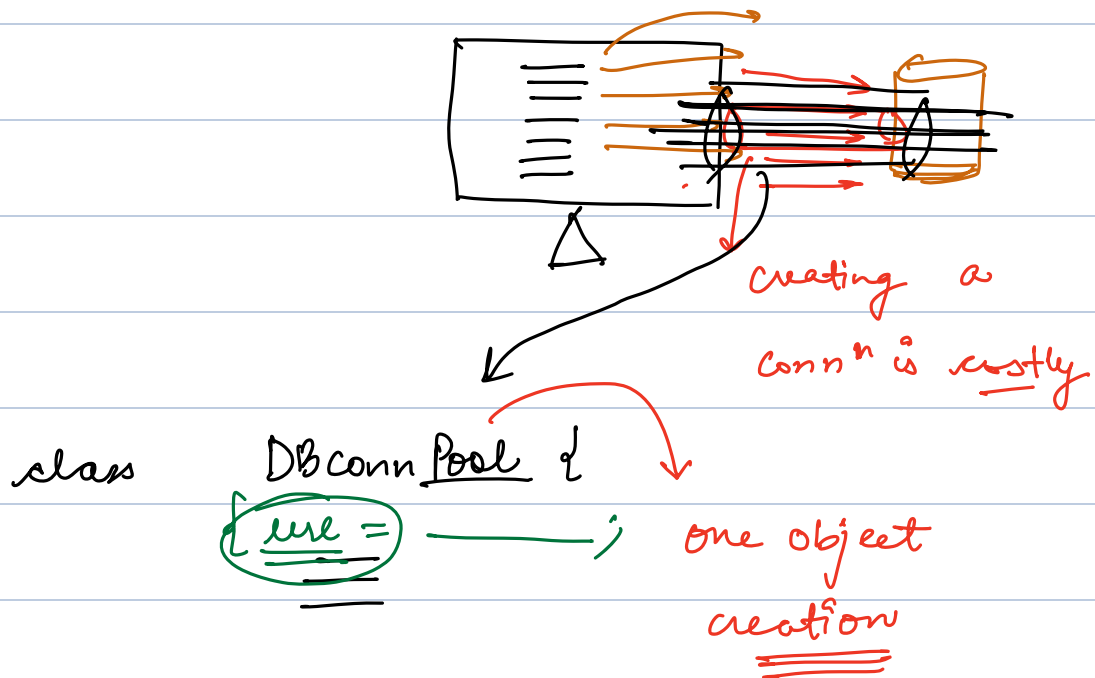 creating a
connⁿ is costly
class DBconnPool {
{ url = ; one object
creation